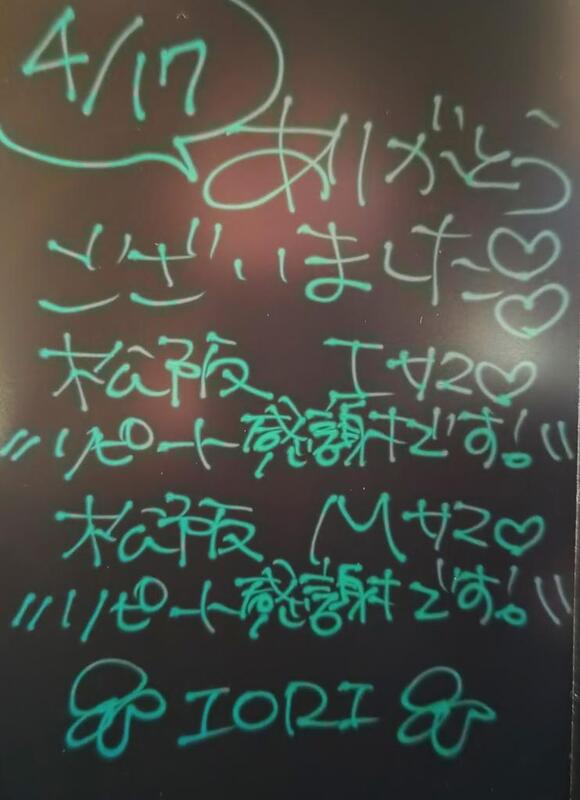 4/17
ありがとう
ございました♡♡
松阪 Iサマ♡
〃リピート感謝です!〃
松阪 Mサマ♡
〃リピート感謝です!〃
IORI